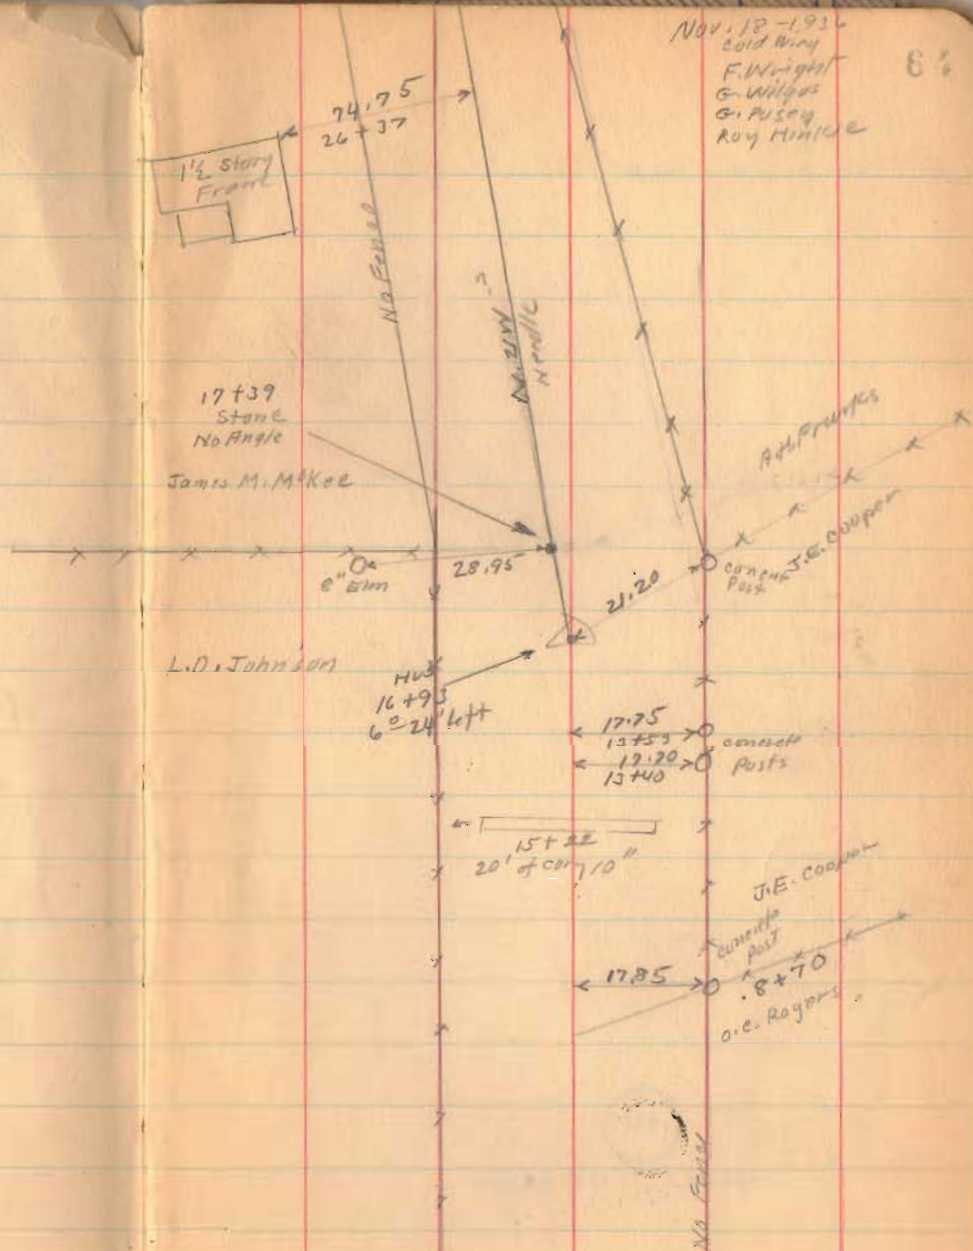 Nov. 18-193
Cold Windy
F. Wright
G. Wilgus
G. Pusey
Roy Hinkle
74.75
26+37
1½ Story
Frame
No Fence
N. 21 W
Needle
17+39
Stone
No Angle
James M. McKee
A.H. Prunks
J.E. Cooper
concrete
Post
8" Elm
28.95
21.20
L.D. Johnson
Hub
16+93
6°-24' left
17.75
13+53
17.70
13+40
concrete
Posts
15+22
20' of corg 10"
J.E. Cooper
concrete
post
17.85
8+70
O.C. Rogers
No Fence